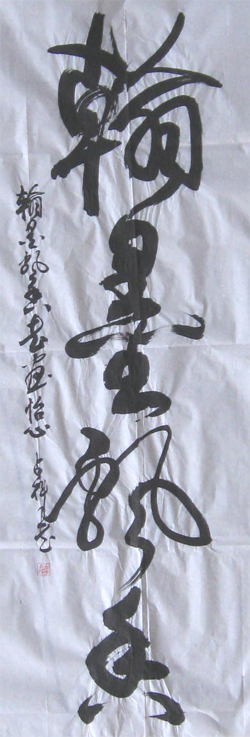 翰墨飘香
翰墨飘香书画怡心